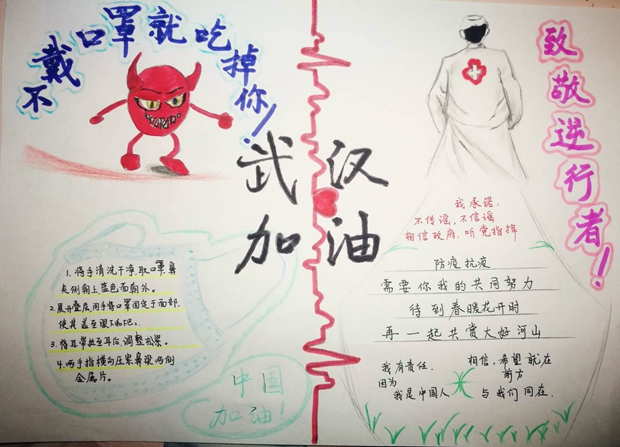 不戴口罩就吃掉你!
武汉
加油
致敬逆行者!
1.将手清洗干净,取口罩鼻
夹侧朝上蓝色面朝外。
2.展开叠层,用手将口罩固定于面部,
使其盖至眼下和下巴。
3.将耳带挂至耳后,调整松紧。
4.两手指横向压紧鼻梁两侧
金属片。
中国
加油!
我承诺:
不传谣,不信谣
相信政府,听党指挥
防疫抗疫
需要你我的共同努力
待到春暖花开时
再一起共赏大好河山
我有责任,
因为
我是中国人
相信,希望就在
前方
与我们同在.